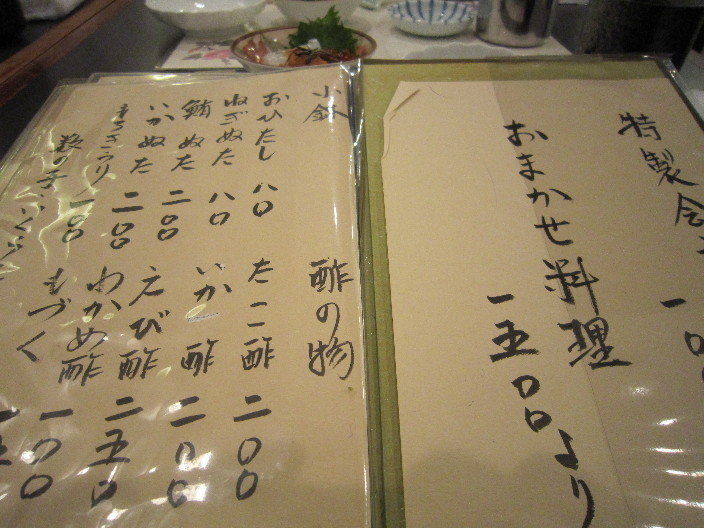 特製会
おまかせ料理
一五〇〇より
小鉢
おひたし 八〇
ねぎぬた 八〇
鮪ぬた 二〇〇
いかぬた 二〇〇
もろきうり 一〇〇
数の子
いくら
酢の物
たこ酢 二〇〇
いか酢 二〇〇
えび酢 二五〇
わかめ酢 一〇〇
もづく